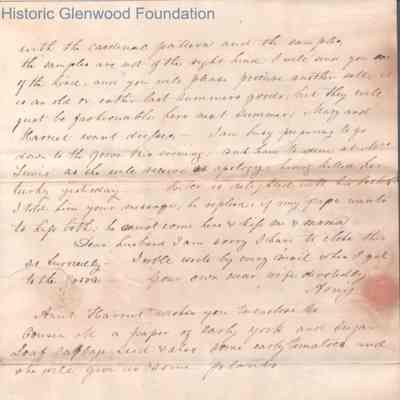 Historic Glenwood Foundation
with the cardinal pattern and the samples,
the samples are not of the right kind I will send you one
of the kind, and you will please procure another
is an old or rather last summers goods, but they will
just be fashionable here next summer, Mary and
Harriet want dresses — I am busy preparing to go
down to the farm this evening, and have to dine at Mrs
Lewis as she will receive no apology, having killed her
turkey yesterday is delighted with his
I told him your message, he replied, if my papa wants
to kiss both, he must come here & kiss me & mama
Dear husband I am sorry I have to close this
so hurriedly — I will write by every mail when I get
to the Your own dear wife devotedly
Aunt Harriet wishes you to enclose to
a paper of early york and sugar
loaf cabbage seed & also some early tomatoes and
she will give us some potatoes